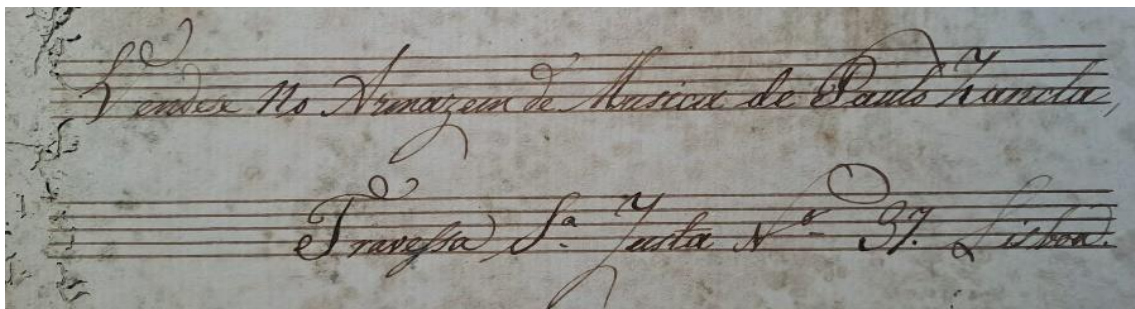 Vende-se no Armazem de Musica de Paulo Zancla,
Travessa S.ª Justa N.º 37. Lisboa.